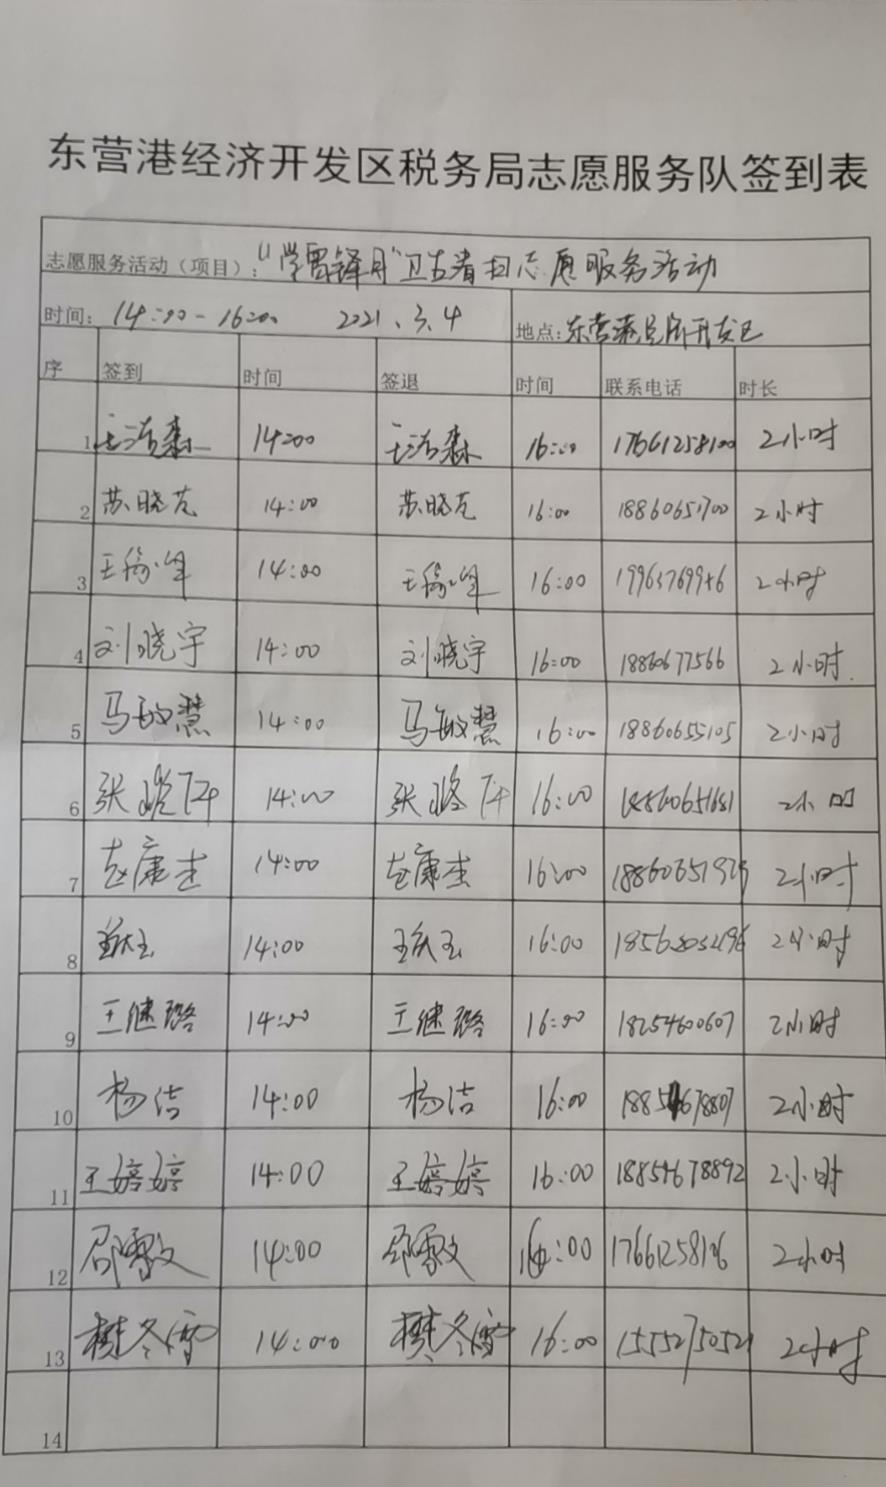 东营港经济开发区税务局志愿服务队签到表
志愿服务活动（项目）：“学雷锋月”卫生清扫志愿服务活动
时间：14:00-16:00 2021.3.4 地点：东营港经济开发区
序 签到 时间 签退 时间 联系电话 时长
1 14:00 16:00 17661258100 2小时
2 苏晓 14:00 苏晓 16:00 18860651700 2小时
3 王 14:00 王 16:00 2小时
4 刘晓宇 14:00 刘晓宇 16:00 18860677566 2小时
5 马敏慧 14:00 马敏慧 16:00 18860655105 2小时
6 张 14:00 张 16:00 2小时
7 赵康杰 14:00 赵康杰 16:00 2小时
8 14:00 16:00 2小时
9 王继璐 14:00 王继璐 16:00 18254600607 2小时
10 杨洁 14:00 杨洁 16:00 18854678807 2小时
11 王婷婷 14:00 王婷婷 16:00 18854678892 2小时
12 邵雪文 14:00 邵雪文 16:00 17661258106 2小时
13 樊冬雪 14:00 樊冬雪 16:00 15552750521 2小时
14